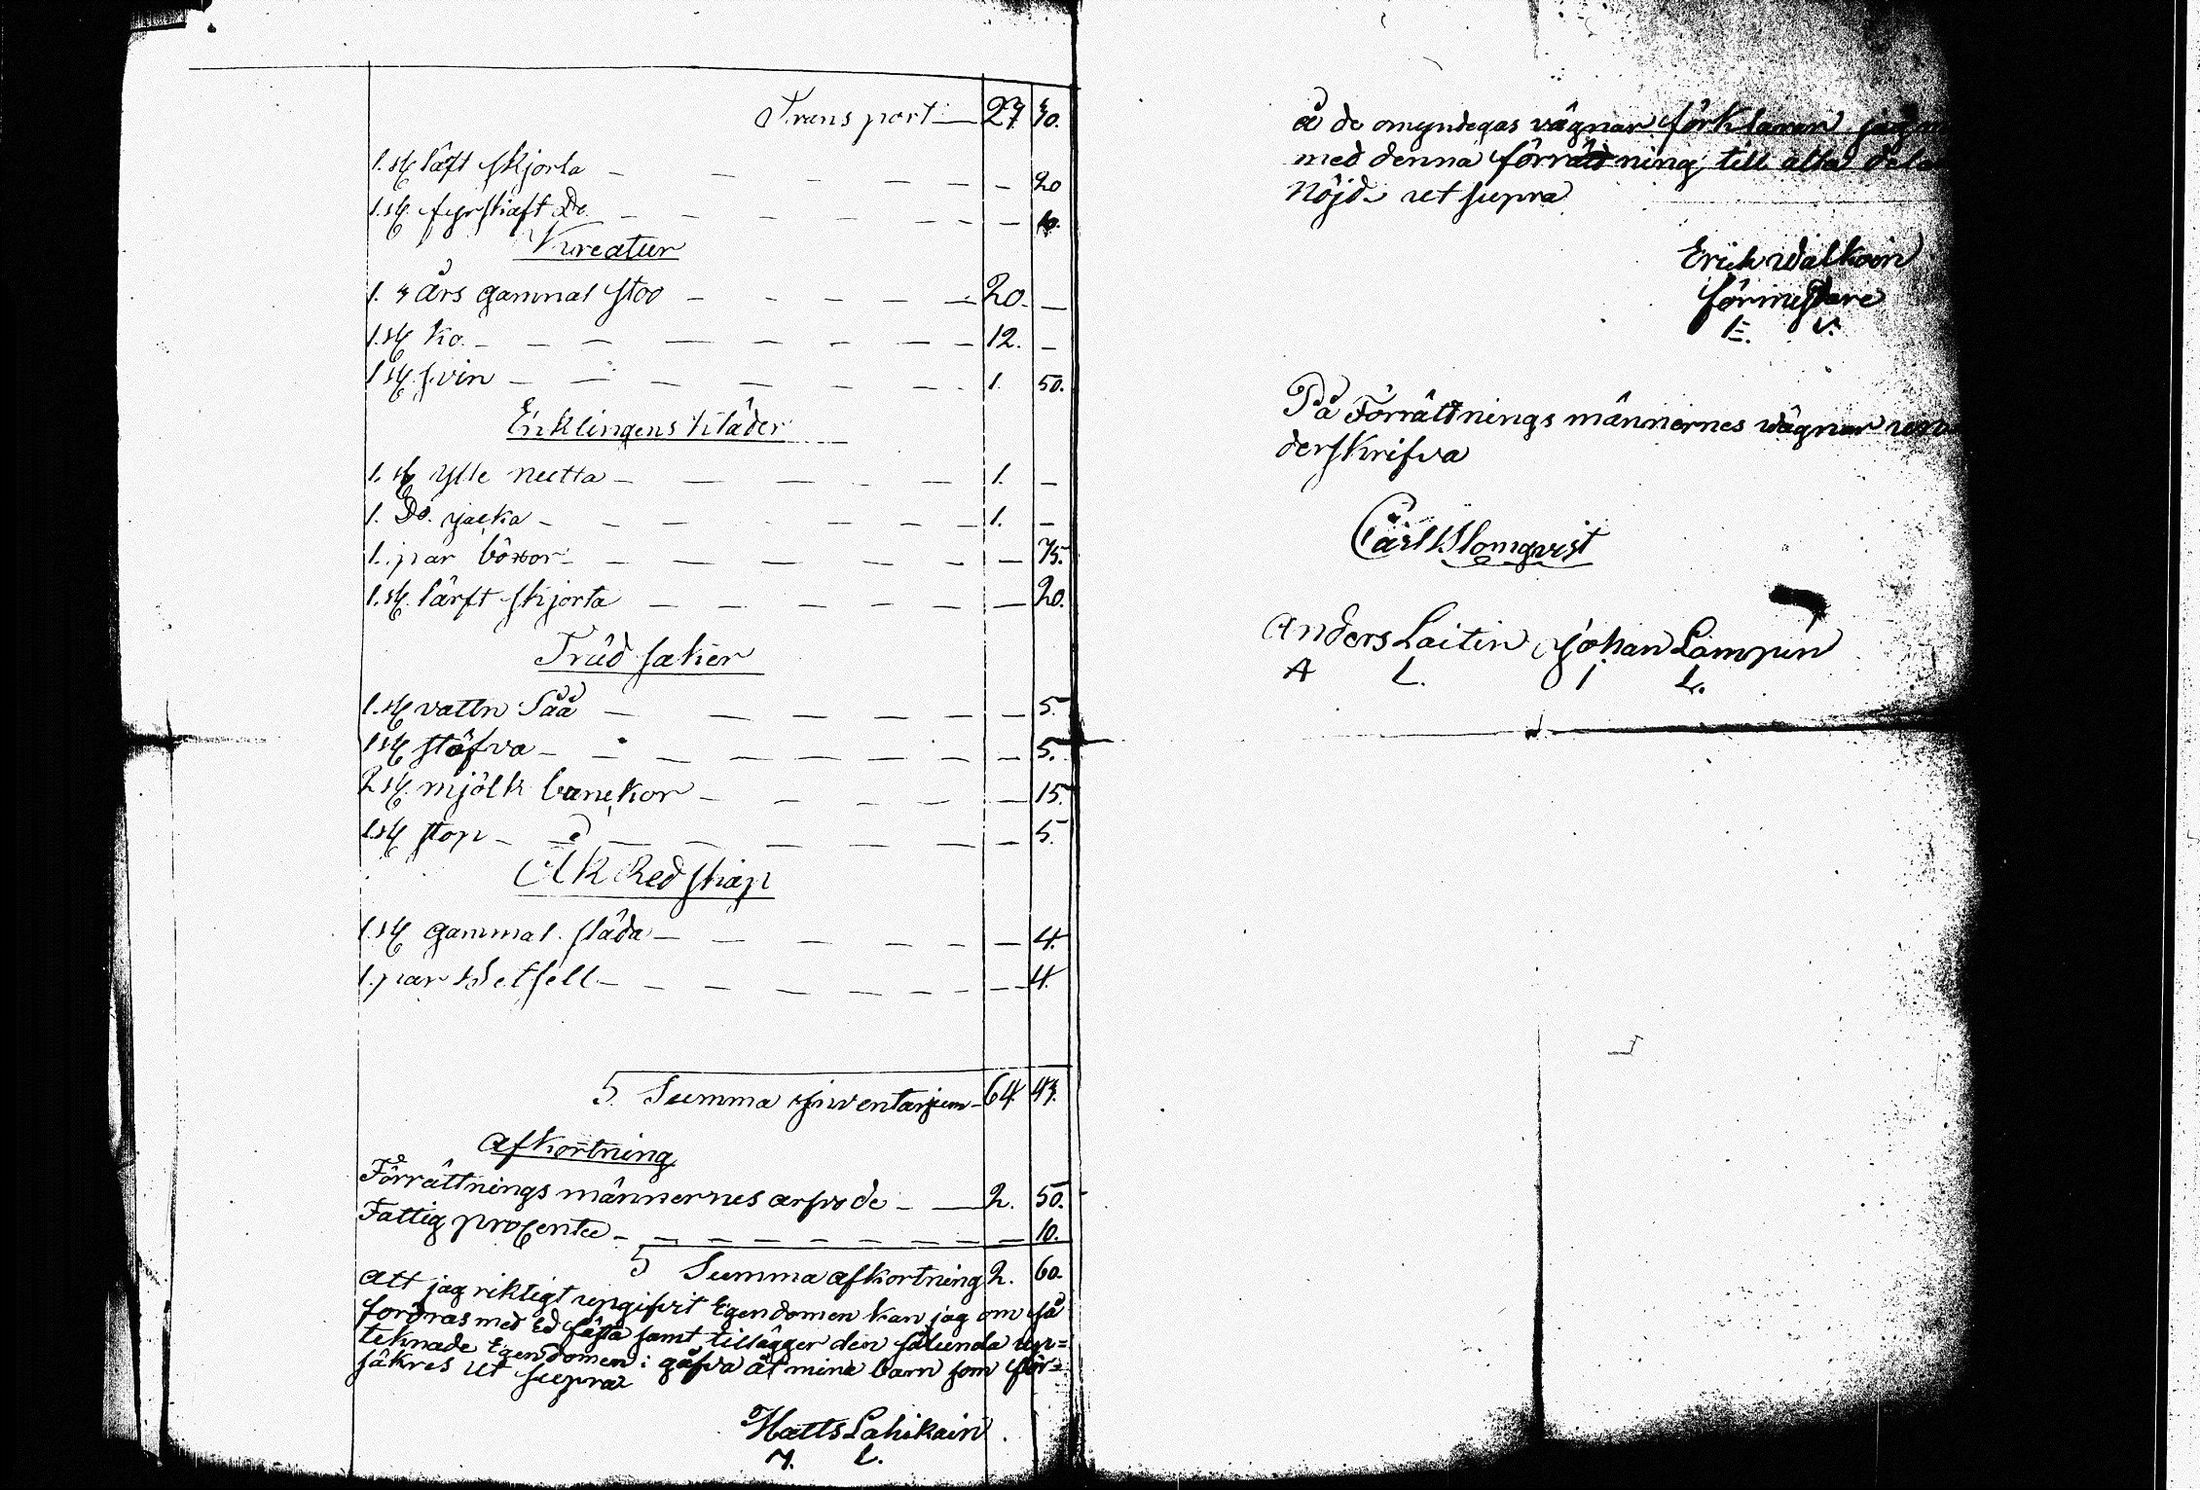 Transport 27 40.
1. st läft skjorta 20
1. st. fyrskaft Do. 10.
Kreatur
1. 4 års gammal stoo 20. —
1. st ko. 12. —
1 st. svin 1. 50.
Enklingens kläder
1. st ylle nutta 1. —
1. Do. jacka 1. —
1. par böxor 75.
1. st. lärft skjorta 20.
Träd saker
1. st vattn Såå 5.
1 st stäfva 5.
2 st. mjölk bunckor 15.
1. st stop 5.
Åk Redskap
1. st gammal släda 4.
1. par 4.
S. Summa Inventarium 64 43.
Afkortning
Förrättnings männernes arfvode 2. 50.
Fattig procenten 10.
S Summa afkortning 2. 60.
Att jag riktigt upgifvit Egendomen kan jag om så
fordras med Ed fästa samt tillägger den sålunda up=
teknade Egendomen i gåfva åt mina barn som för=
säkres ut supra
Matts Lahikain
M. L.
å de omyndegas vägnar förklarar jag
med denna förrättning till alla dela
Nöjd ut supra
Erich Walkoin
förmyndare
E. V.
På Förrättnings männernes vägnar un
derskrifva
Carl Blomqvist
Anders Laitin Johan Lampin
A L. I L.